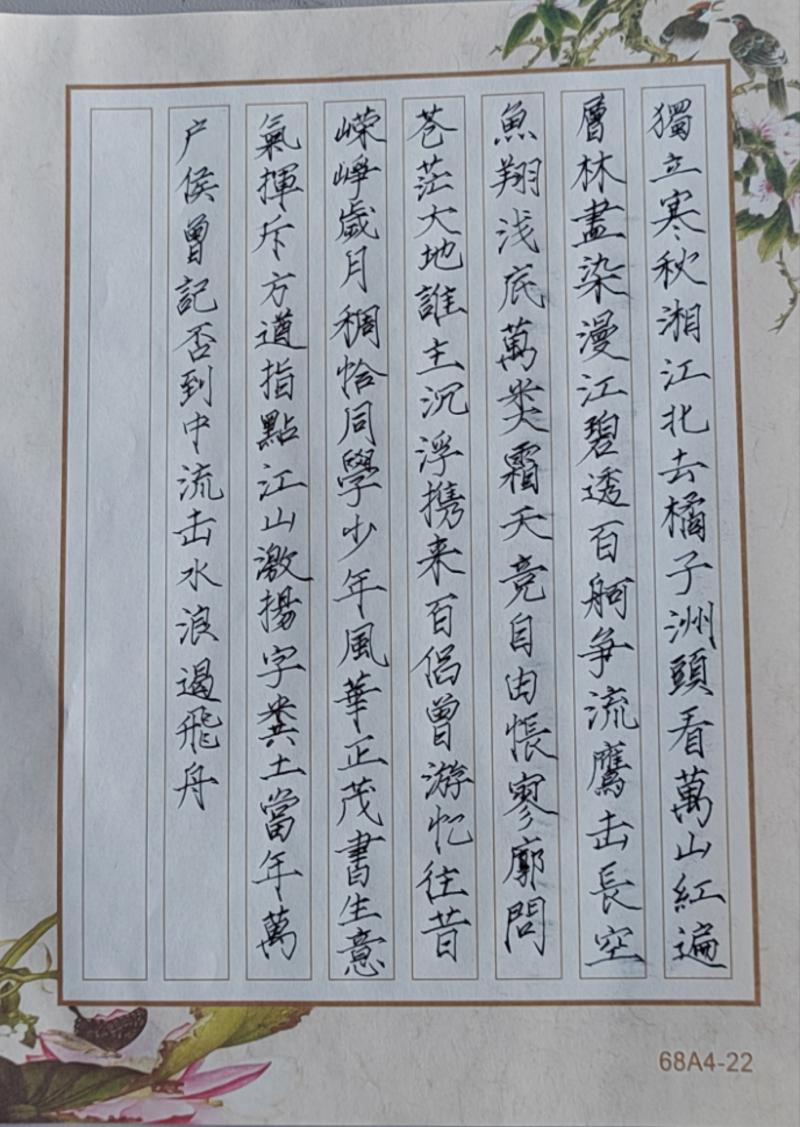 獨立寒秋湘江北去橘子洲頭看萬山紅遍
層林盡染漫江碧透百舸争流鷹击長空
魚翔浅底萬类霜天竞自由悵寥廓問
苍茫大地誰主沉浮携来百侣曾游忆往昔
嵘峥歲月稠恰同學少年風華正茂書生意
氣揮斥方遒指點江山激揚字粪土當年萬
户侯曾記否到中流击水浪遏飛舟
68A4-22